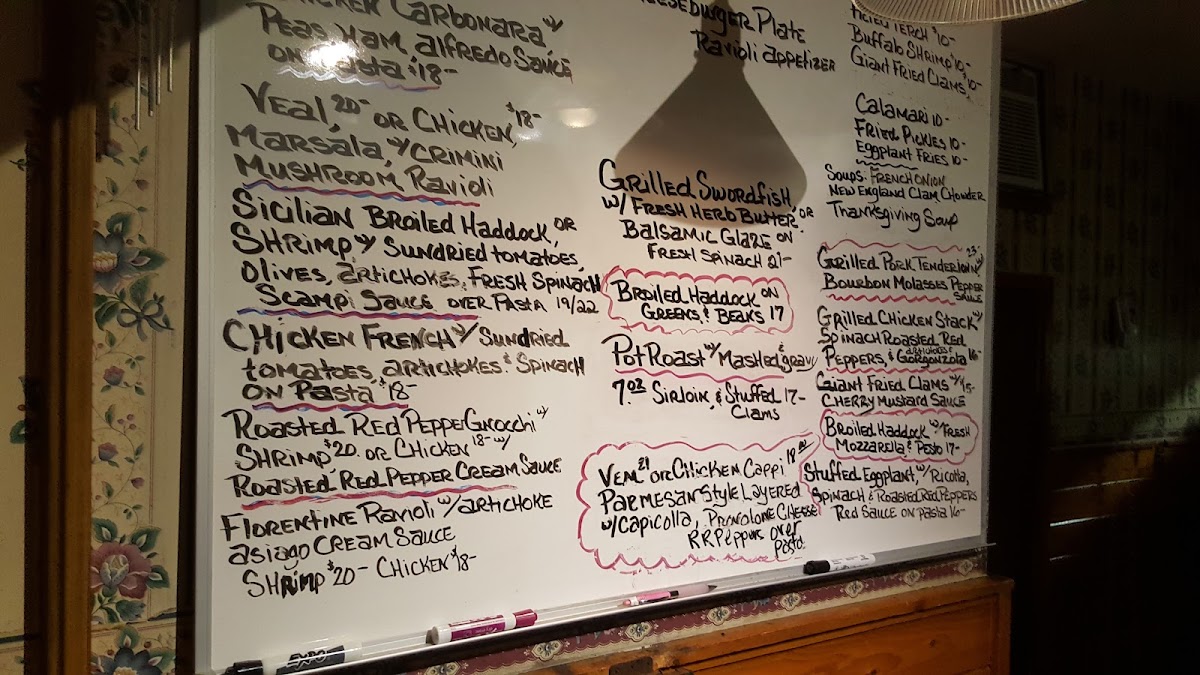 Chicken Carbonara w/
Peas, Ham, Alfredo Sauce
on Pasta $18-
Veal, 20- or Chicken, $18-
Marsala, w/ Crimini
Mushroom Ravioli
Sicilian Broiled Haddock, or
Shrimp w/ Sundried tomatoes,
Olives, artichokes, Fresh Spinach
Scampi Sauce over Pasta 19/22
Chicken French w/ Sundried
tomatoes, artichokes & Spinach
on Pasta $18-
Roasted Red Pepper Gnocchi w/
Shrimp $20 or Chicken 18- w/
Roasted Red Pepper Cream Sauce
Florentine Ravioli w/ artichoke
asiago Cream Sauce
Shrimp $20- Chicken $18-
Cheeseburger Plate
Ravioli appetizer
Grilled Swordfish
w/ Fresh Herb Butter or
Balsamic Glaze on
Fresh Spinach 21-
Broiled Haddock on
Greens & Beans 17
Pot Roast w/ Mashed & gravy
7oz Sirloin & Stuffed 17-
Clams
Veal 21 or Chicken Cappi 18
Parmesan Style Layered
w/ Capicolla, Provolone Cheese
R.R. Peppers over
Pasta
Fried Perch $10-
Buffalo Shrimp $10-
Giant Fried Clams $10-
Calamari 10-
Fried Pickles 10-
Eggplant Fries 10-
Soups: French Onion
New England Clam Chowder
Thanksgiving Soup
Grilled Pork Tenderloin w/ 23-
Bourbon Molasses Pepper
Sauce
Grilled Chicken Stack w/
Spinach Roasted Red
Peppers, artichokes & Gorgonzola 16-
Giant Fried Clams w/ 15-
Cherry Mustard Sauce
Broiled Haddock w/ Fresh
Mozzarella & Pesto 17-
Stuffed Eggplant, w/ Ricotta,
Spinach & Roasted Red Peppers
Red Sauce on pasta 16-
EXPO